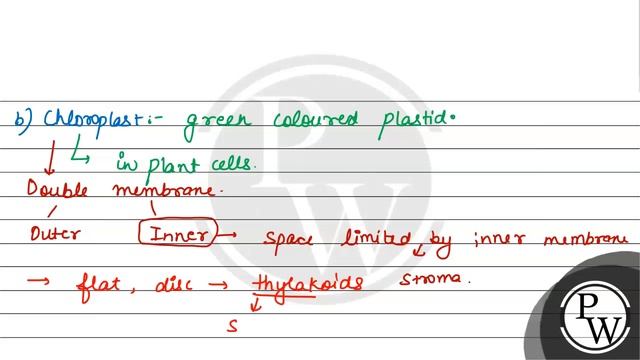 b) Chloroplast:- green coloured plastid.
↳ in plant cells.
Double membrane.
Outer Inner → space limited by inner membrane
↓ stroma.
→ flat, disc → thylakoids
↓
S
PW
PW